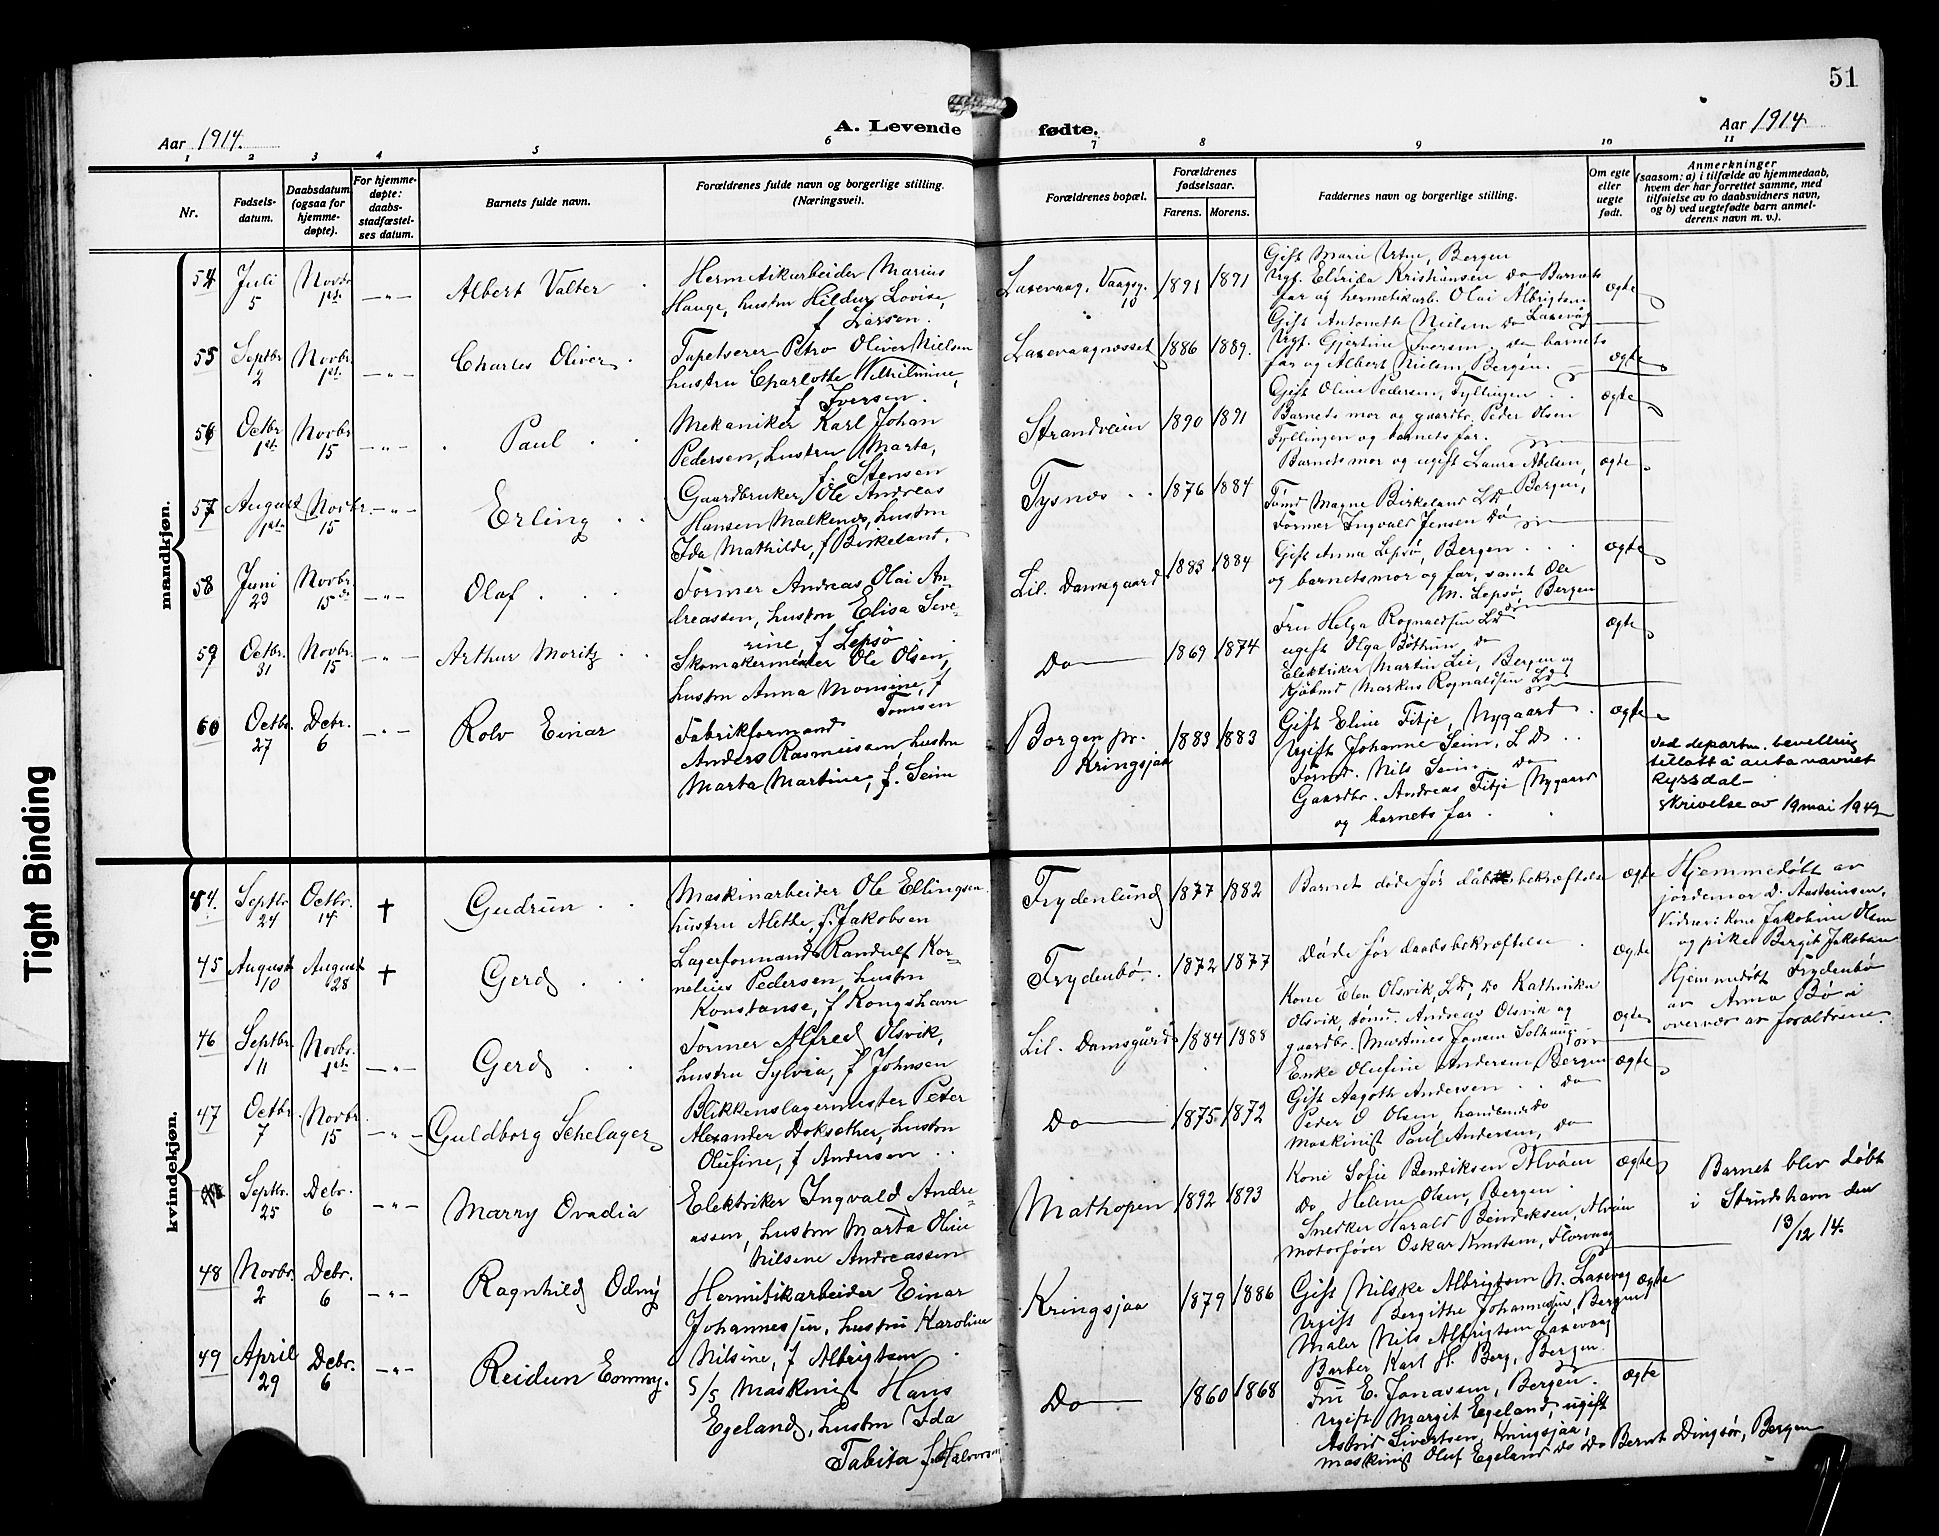 51
A. Levende fødte.
Aar 1914.
Aar 1914
1 2 3 4 5 6 7 8 9 10 11
Nr.
Fødsels-
datum.
Daabsdatum
(ogsaa for
hjemme-
døpte).
For hjemme-
døpte:
daabs-
stadfæstel-
ses datum.
Barnets fulde navn.
Forældrenes fulde navn og borgerlige stilling.
(Næringsvei).
Forældrenes bopæl.
Forældrenes
fødselsaar.
Farens. Morens.
Faddernes navn og borgerlige stilling.
Om egte
eller
uegte
født.
Anmerkninger
(saasom: a) i tilfælde av hjemmedaab,
hvem der har forrettet samme, med
tilføielse av to daabsvidners navn,
og b) ved uegtefødte barn anmel-
derens navn m. v.).
mandkjøn.
54 Juli 5 Novbr. 1st. —„—
Albert Valter
Hermetikarbeider Marius
Hauge, hustru Hildur Lovise,
f. Larsen.
Laxevaag, Vaagsg. 10
1891 1891
Gift Marie Urtne, Bergen
Ugt. Elfrida Kristiansen do Barnets
far og hermetikarb. Olai Albrigtsen
ægte
55 Septbr 2 Novbr. 1st. —„—
Charles Oliver
Tapetserer Petro Oliver Nielsen
hustru Charlotte Wilhelmine,
f. Iversen.
Laxevaagnesset
1886 1889.
Gift Antonette Nielsen do Laxevåg
Ugt. Gjertine Iversen do barnets
far og Albert Nielsen, Bergen.
ægte
56 Octbr 1st. Novbr 15 —„—
Paul
Mekaniker Karl Johan
Pedersen, hustru Marta,
f. Stensen
Strandveien
1890 1891
Gift Oline Pedersen, Fyllingen
Barnets mor og gaardbr. Peder Olsen
Fyllingen og barnets far.
ægte
57 August 1st. Novbr. 15 —„—
Erling
Gaardbruker Ole Andreas
Hansen Malkenes, hustru
Ida Mathilde, f. Birkeland.
Tysnes
1876 1884
Barnets mor og ugift Laura Abelsen,
Bergen,
Tømd Magne Birkeland LD
Former Ingvald Jensen Do
ægte
58 Juni 23 Novbr. 15 —„—
Olaf
Former Andreas Olai An-
dreassen, hustru Elisa Seve-
rine, f. Lepsø
Lil. Damsgaard
1883 1884
Gift Anna Lepsø, Bergen
og barnets mor og far, samt Ole
M. Lepsø, Bergen
ægte
59 Octbr. 31 Novbr. 15 —„—
Arthur Moritz
Skomakermester Ole Olsen,
hustru Anna Monsine, f
Tomsen
Do
1869 1874
Fru Helga Rognaldsen LD
ugift Olga Bøthun do
Elektriker Martin Lie, Bergen og
Kjøbmd Markus Rognaldsen LD
ægte
60 Octbr. 27 Debr. 6 —„—
Rolv Einar
Fabrikformand
Anders Rasmussen, hustru
Marta Martine, f. Seim
Borgen pr.
Kringsjaa
1883 1883
Gift Eline Fitje, Nygaard
Ugift Johanne Seim, L D
Tømd. Nils Seim Do
Gaardbr. Andreas Fitje Nygaard
og barnets far.
ægte
Ved departm. bevelling
tillatt å anta navnet
Ryssdal—
skrivelse av 19 mai 1942
kvindekjøn.
44. Septbr. 24 Octbr. 14 +
Gudrun
Maskinarbeider Ole Ellingsen
hustru Alette, f. Jakobsen
Frydenlund
1877 1882
Barnet døde før dåbsbekræftelse
ægte
Hjemmedøbt av
jordemor D. Austeinsen.
Vidner: Kone Jakobine Olsen
og pike Bergit Jakobsen
45 August 10 August 28 +
Gerd
Lagerformand Randulf Kor-
nelius Pedersen, hustru
Konstanse, f Kongshavn
Frydenbø.
1872 1877
Døde før daabsbekræftelse
ægte
Hjemmedøbt Frydenbø
av Anna Bø i
overvær av foreldrene.
46 Septbr. 11 Novbr. 1st. —„—
Gerd
Former Alfred Olsvik,
hustru Sylvia, f Johnsen
Lil. Damsgård
1884 1888
Kone Elen Olsvik, LD, Do Kathrine
Olsvik, tømr. Andreas Olsvik og
gaardbr. Martines Jansen Solhaug
ægte
47 Octbr 7 Novbr. 15 —„—
Guldborg Schelager
Blikkenslagermester Peter
Alexander Doksæther, hustru
Olufine, f Andersen
Do
1875 1872
Enke Olufine Andersen Bergen
Gift Aagoth Andersen do
Peder O Olsen, handsmd do
maskinist Paul Andersen, do
ægte
Septbr. 25 Debr. 6 —„—
Marry Ovadia
Elektriker Ingvald Andre-
assen, hustru Marta Oline
Nilsine Andreassen
Mathopen
1892 1893
Kone Sofie Bendiksen Alvøen
Do Helene Olsen, Bergen
Snedker Harald Bendiksen, Alvøen
motorfører Oskar Knutsen, Florvaag
ægte
Barnet blev døbt
i Strudshavn den
13/12 14.
48 Novbr. 2 Debr. 6 —„—
Ragnhild Odny
Hermitikarbeider Einar
Johannessen, hustru Karoline
Nilsine, f Albrigtsen
Kringsjaa
1879 1886
Gift Nilske Albrigtsen N. Laxevag
Ugift Bergitte Johannessen, Bergen
Maler Nils Albrigtsen Laxevaag
Barber Karl H. Berg, Bergen
ægte
49 April 29 Debr. 6 —„—
Reidun Emmy.
S/S Maskinist Hans
Egeland, hustru Ida
Tabita f. Halvorsen
Do
1860 1868
Fru E. Jonassen, Bergen.
Ugift Margit Egeland, ugift
Astrid Sivertsen, Kringsjaa,
maskinist Oluf Egeland do Do Bernt Dingsør, Bergen
ægte
Tight Binding